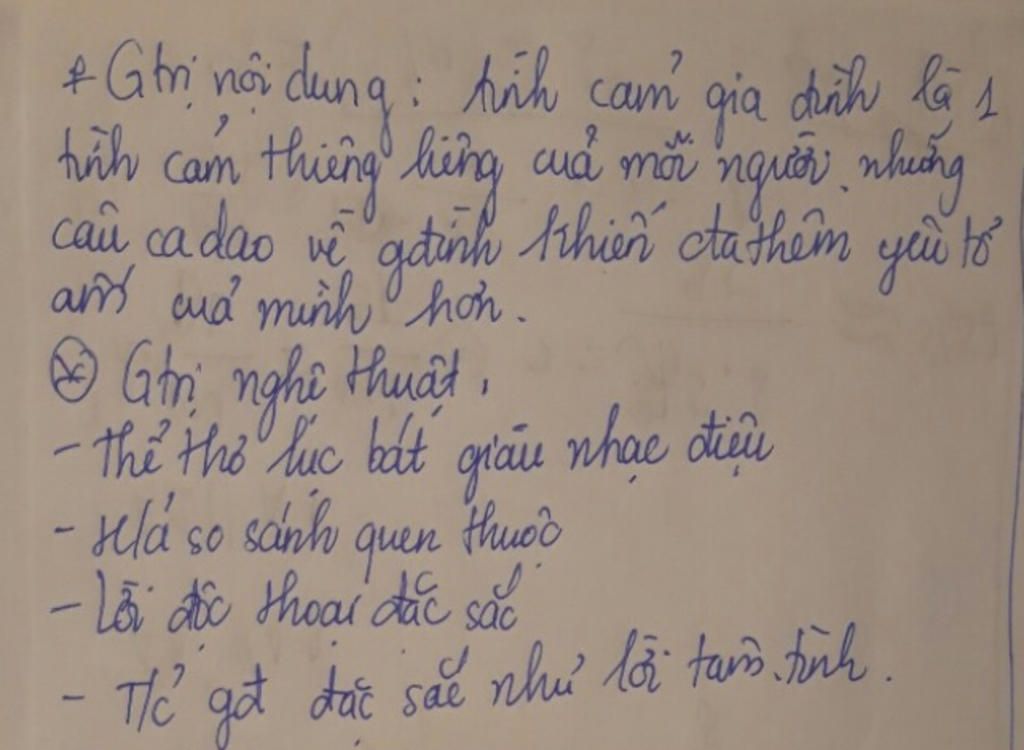 * Gtrị nội dung: tình cảm gia đình là 1
tình cảm thiêng liêng của mỗi người. những
câu ca dao về gđình khiến cta thêm yêu tổ
ấm của mình hơn.
* Gtrị nghệ thuật.
- Thể thơ lục bát giàu nhạc điệu
- H/á so sánh quen thuộc
- Lời độc thoại đặc sắc
- T/c gđ đặc sắc như lời tâm tình.